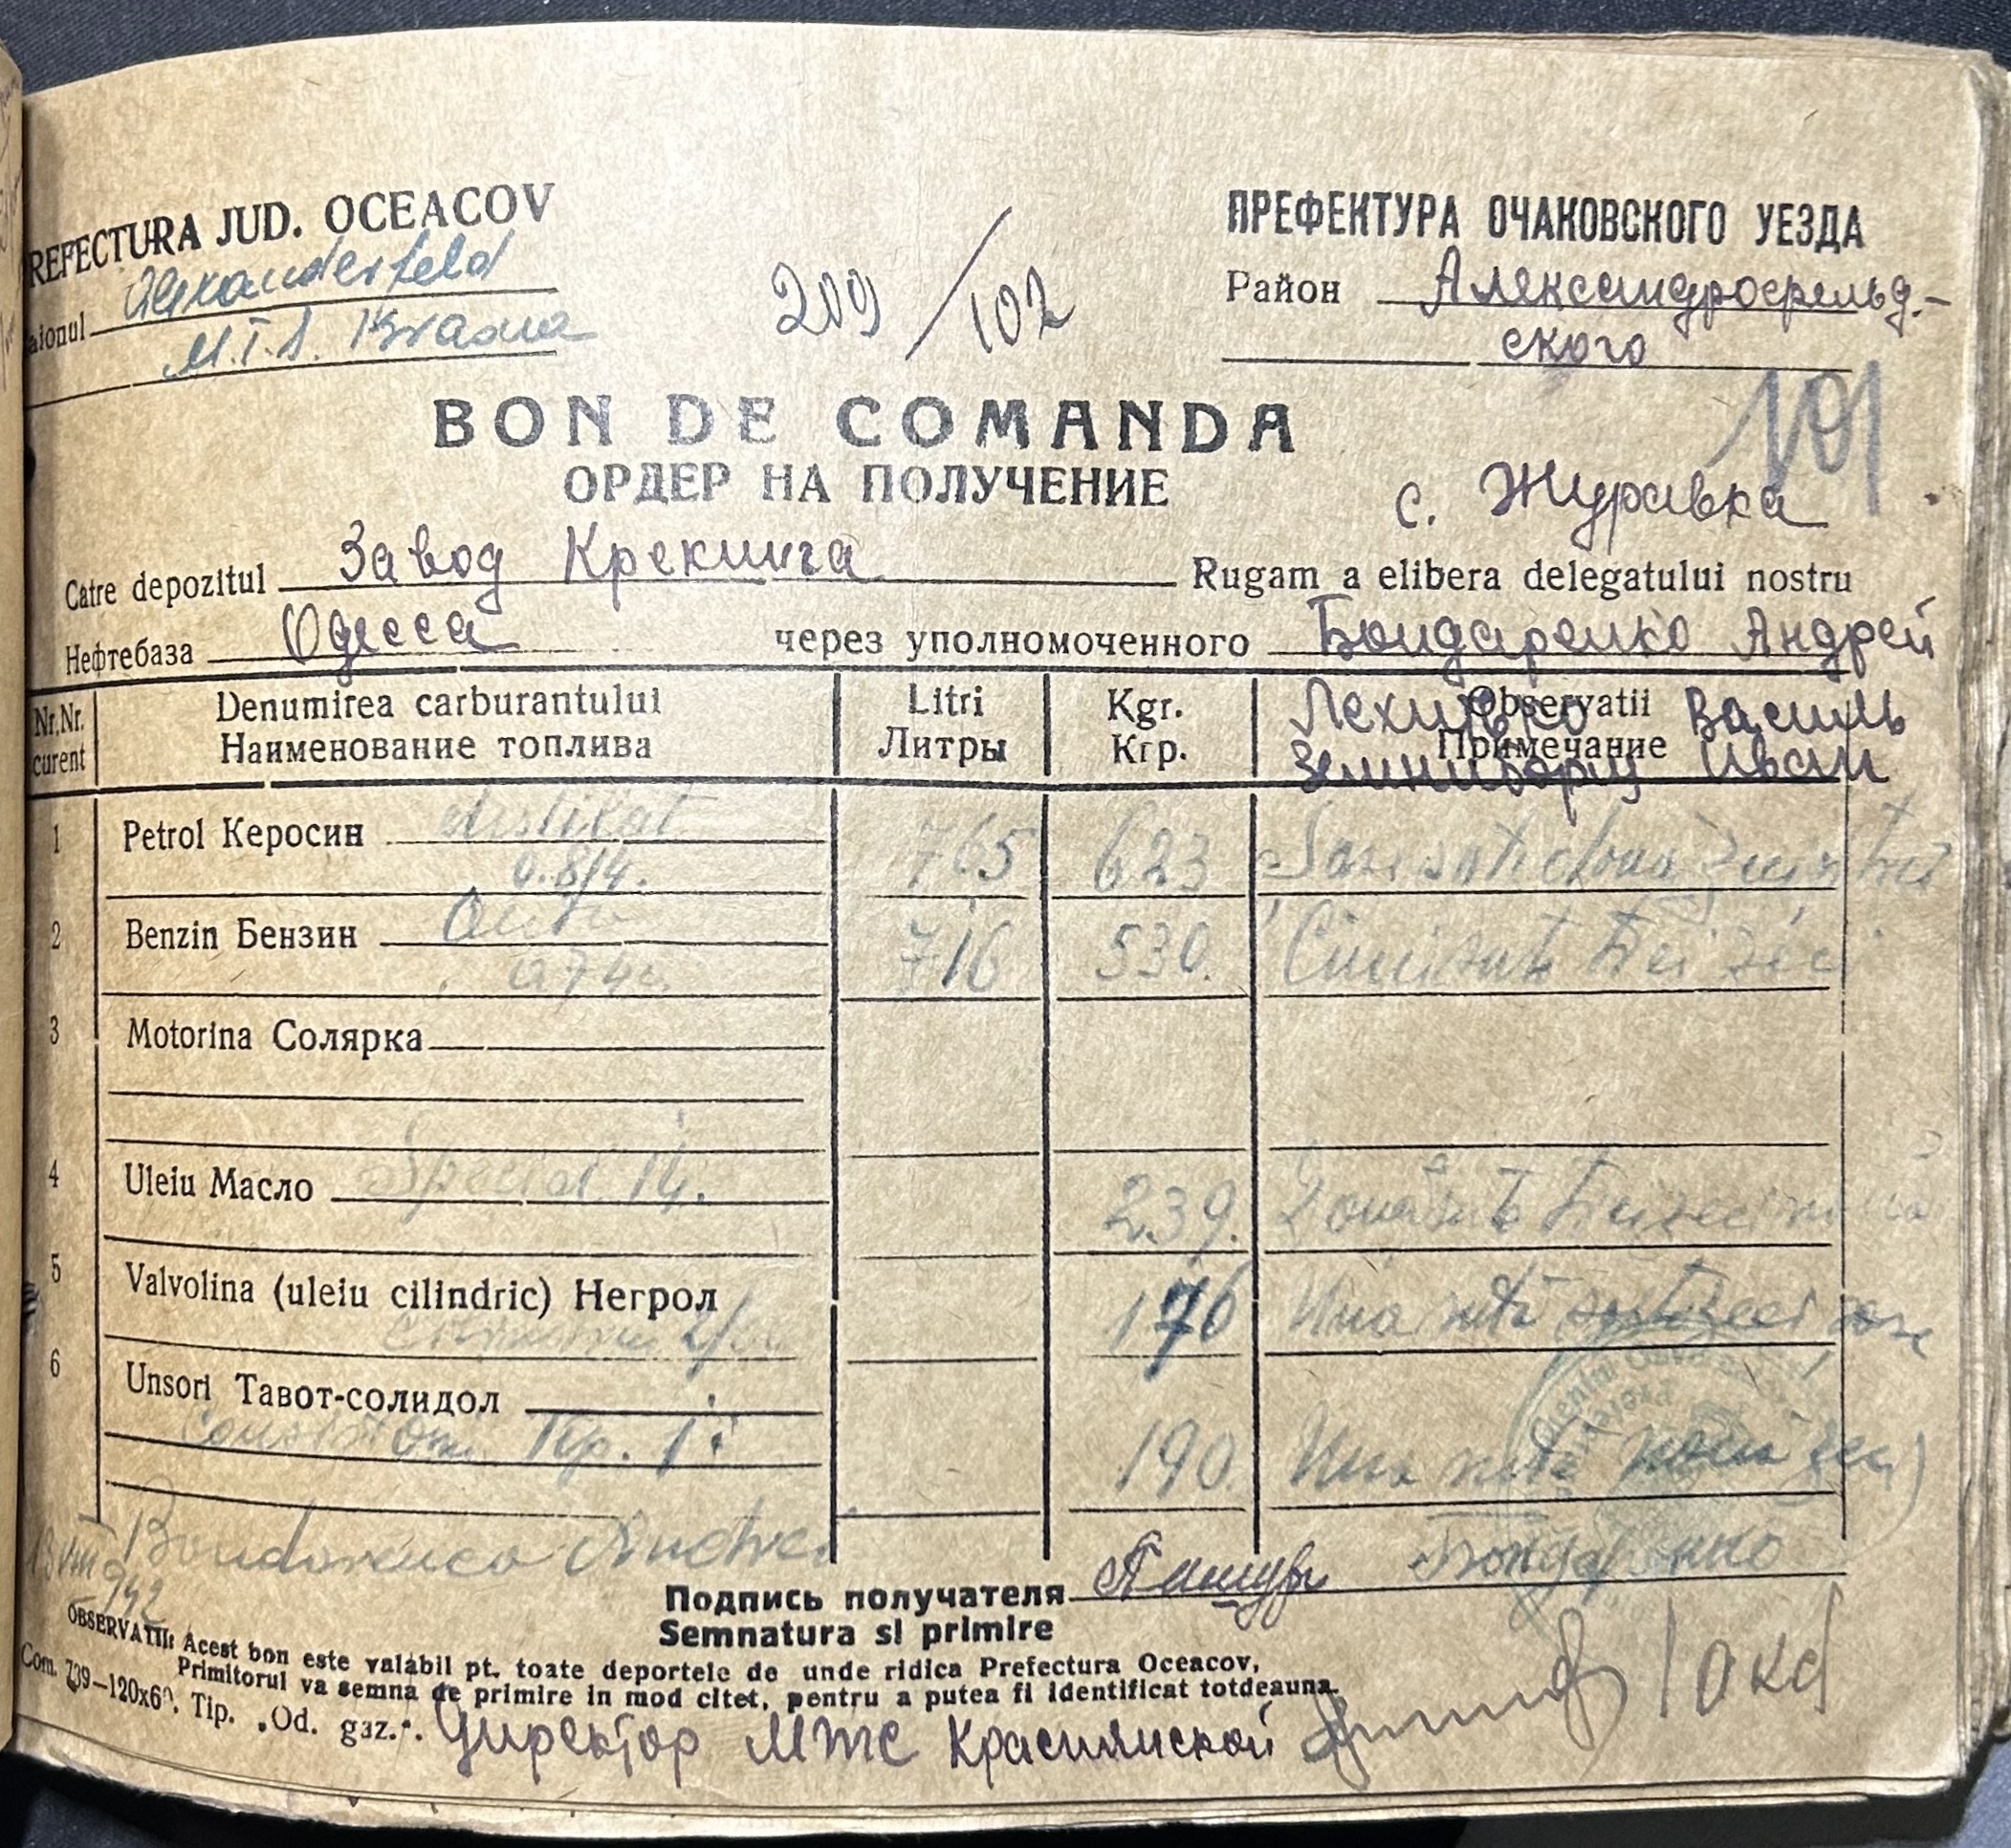 REFECTURA JUD. OCEACOV
aionul Alexanderfeld
M.T.S. Krasna
209/102
ПРЕФЕКТУРА ОЧАКОВСКОГО УЕЗДА
Район Александрофельд-
ского
101
BON DE COMANDA
ОРДЕР НА ПОЛУЧЕНИЕ
с. Журавка
Catre depozitul Завод Крекинга Rugam a elibera delegatului nostru
Нефтебаза Одесса через уполномоченного Бондаренко Андрей
Василь
Иван
Nr.Nr. curent
Denumirea carburantului
Наименование топлива
Litri
Литры
Kgr.
Кгр.
Observatii
Примечание
1 Petrol Керосин distilat 765 623 Sase sute doua zeci trei
0.814.
2 Benzin Бензин Auto 716 530. Cinci sute trei zeci
0.740.
3 Motorina Солярка
4 Uleiu Масло Special 14. 239. Doua sute trei zeci
5 Valvolina (uleiu cilindric) Негрол 176 Una suta sase
6 Unsori Тавот-солидол
Consistenta Tip. 1 190. Una suta noua zeci
Bondarenco Andrei
13 VIII 942
Подпись получателя Бондаренко
Semnatura si primire
OBSERVATII: Acest bon este valabil pt. toate deportele de unde ridica Prefectura Oceacov,
Primitorul va semna de primire in mod citet, pentru a putea fi identificat totdeauna.
Com. 739—120x60. Tip. „Od. gaz.".
Директор МТС Краснянской